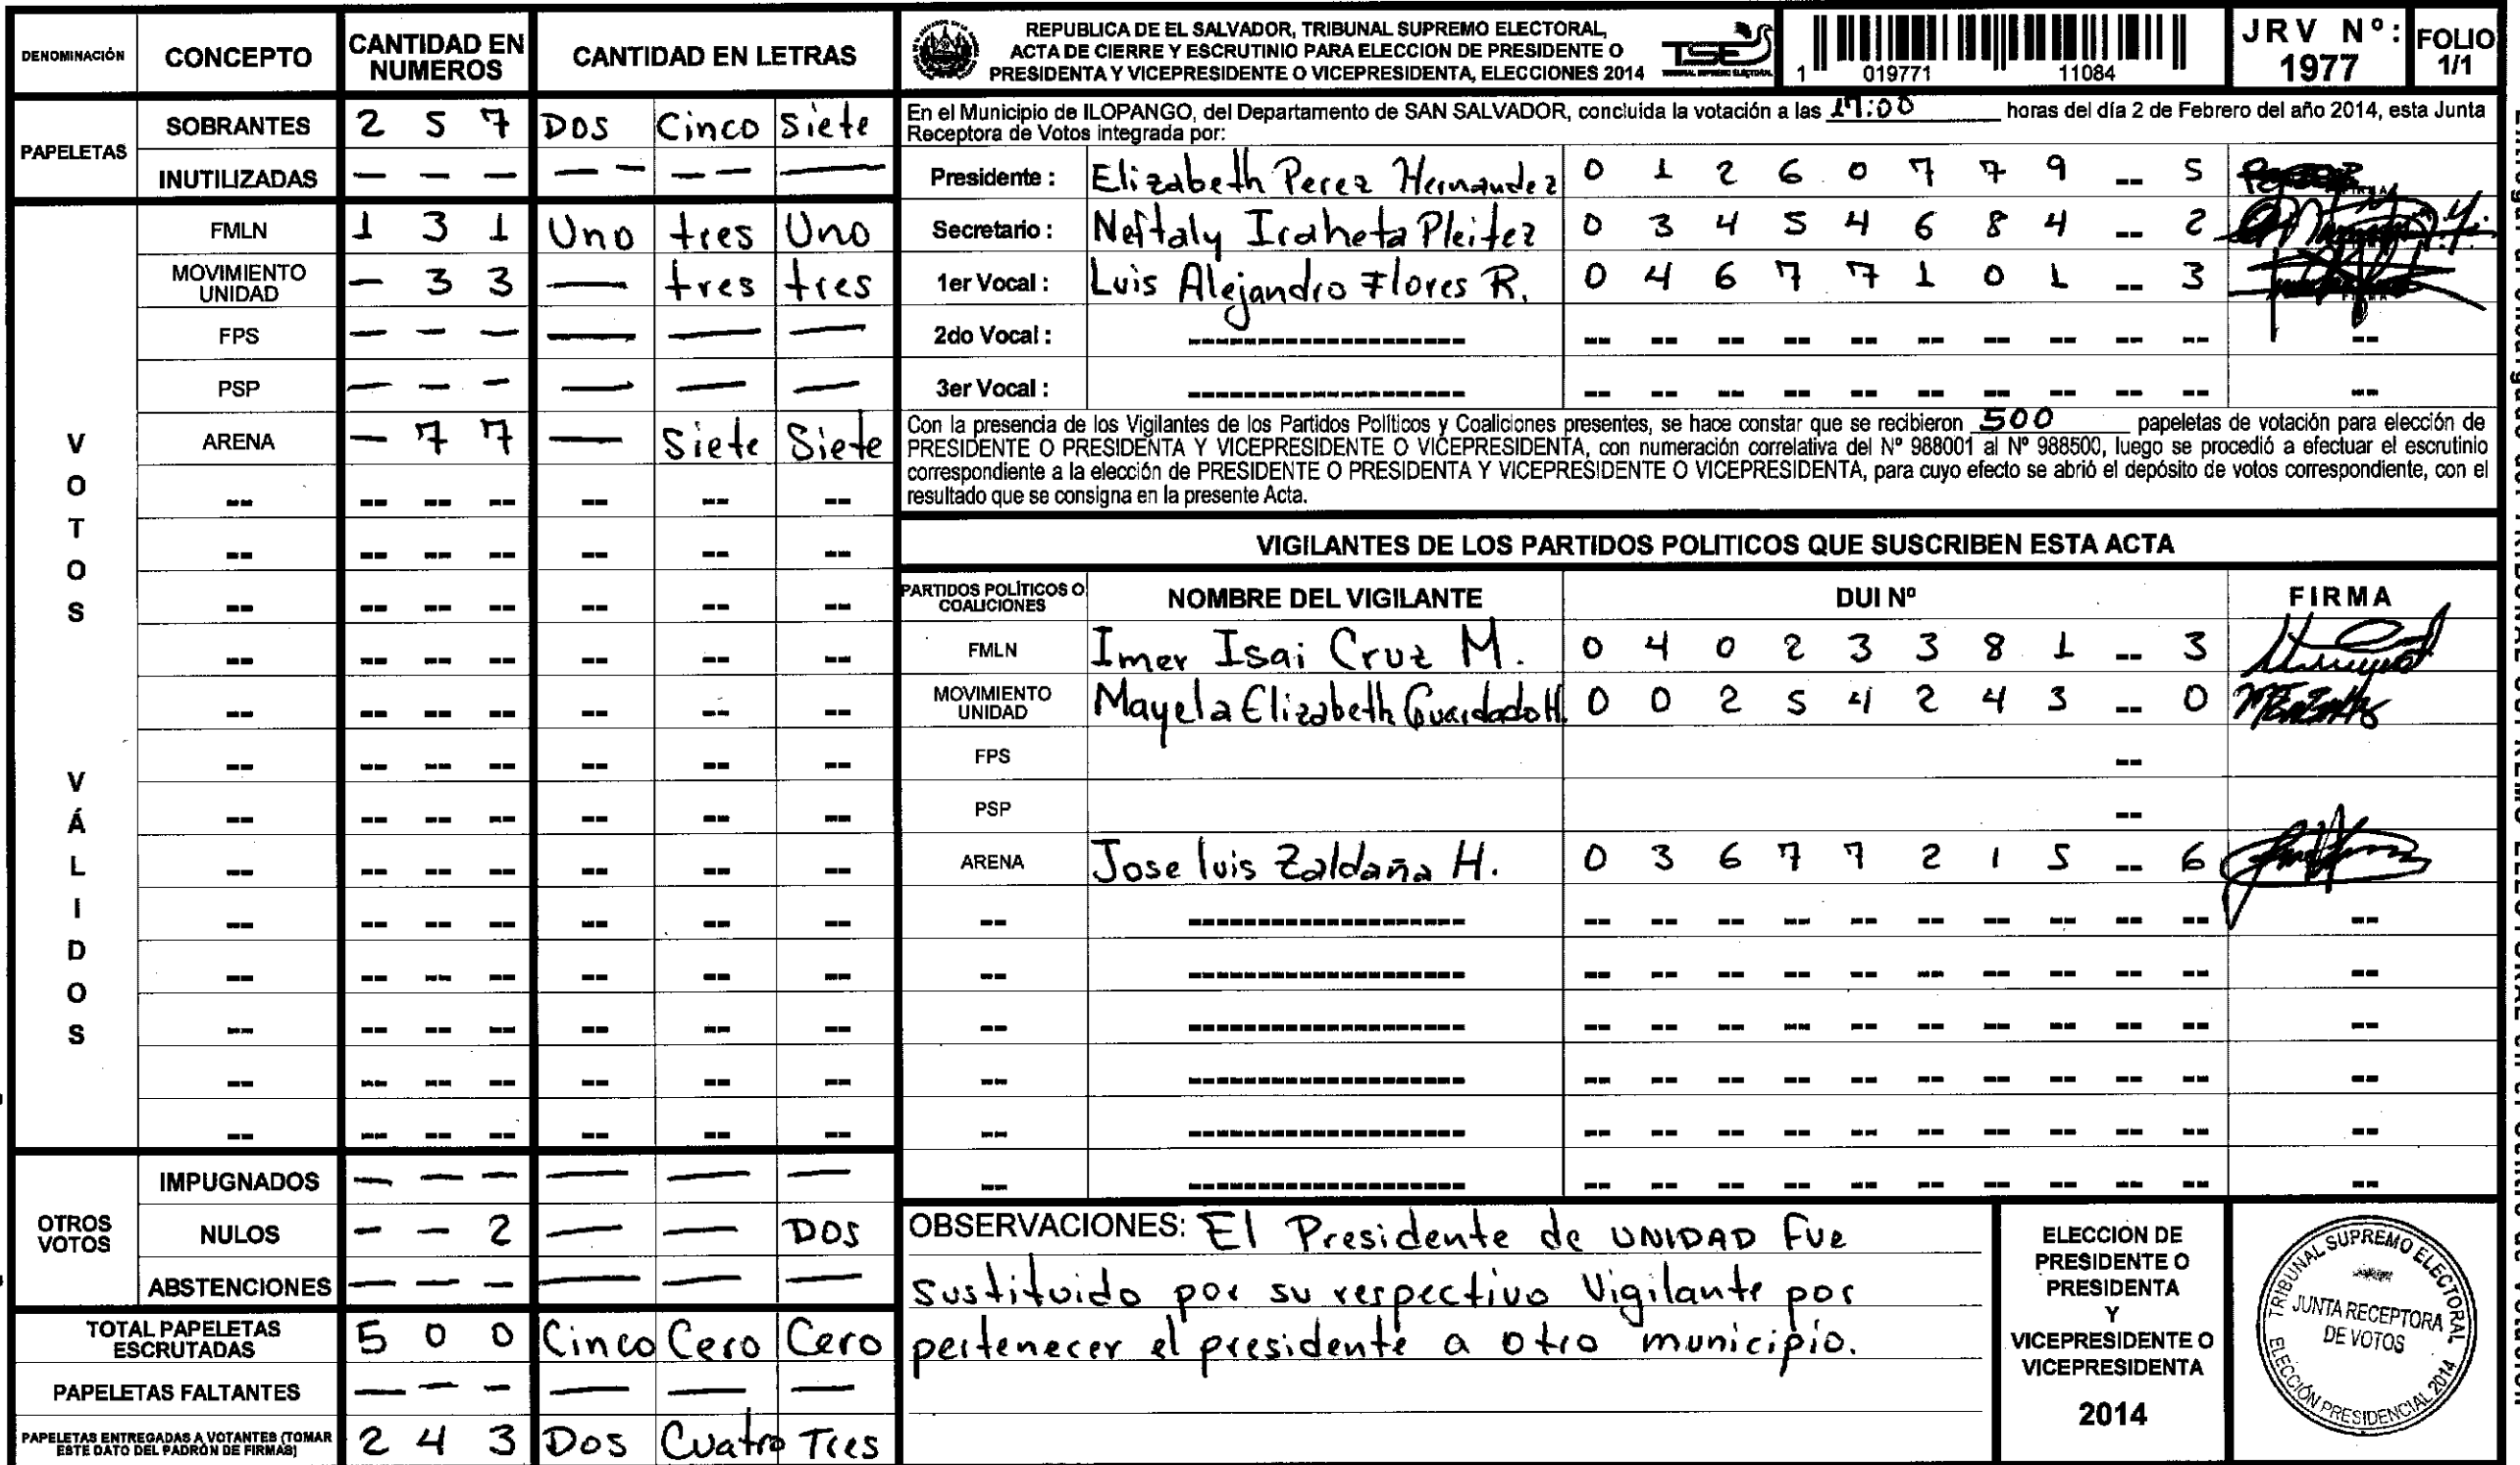 DENOMINACIÓN CONCEPTO CANTIDAD EN NUMEROS CANTIDAD EN LETRAS
PAPELETAS
SOBRANTES 2 5 7 DOS Cinco Siete
INUTILIZADAS — — — — — —
VOTOS VÁLIDOS
FMLN 1 3 1 Uno tres Uno
MOVIMIENTO UNIDAD — 3 3 — tres tres
FPS — — — — — —
PSP — — — — — —
ARENA — 7 7 — Siete Siete
OTROS VOTOS
IMPUGNADOS — — — — — —
NULOS — — 2 — — DOS
ABSTENCIONES — — — — — —
TOTAL PAPELETAS ESCRUTADAS 5 0 0 Cinco Cero Cero
PAPELETAS FALTANTES — — — — — —
PAPELETAS ENTREGADAS A VOTANTES (TOMAR ESTE DATO DEL PADRÓN DE FIRMAS) 2 4 3 Dos Cuatro Tres
REPUBLICA DE EL SALVADOR, TRIBUNAL SUPREMO ELECTORAL,
ACTA DE CIERRE Y ESCRUTINIO PARA ELECCION DE PRESIDENTE O
PRESIDENTA Y VICEPRESIDENTE O VICEPRESIDENTA, ELECCIONES 2014
TSE
TRIBUNAL SUPREMO ELECTORAL
1 019771 11084
JRV Nº: 1977
FOLIO 1/1
En el Municipio de ILOPANGO, del Departamento de SAN SALVADOR, concluida la votación a las 17:00 horas del día 2 de Febrero del año 2014, esta Junta
Receptora de Votos integrada por:
Presidente : Elizabeth Perez Hernandez 0 1 2 6 0 7 7 9 -- 5
Secretario : Neftaly Iraheta Pleitez 0 3 4 5 4 6 8 4 -- 2
1er Vocal : Luis Alejandro Flores R. 0 4 6 7 7 1 0 1 -- 3
2do Vocal :
3er Vocal :
Con la presencia de los Vigilantes de los Partidos Políticos y Coaliciones presentes, se hace constar que se recibieron 500 papeletas de votación para elección de
PRESIDENTE O PRESIDENTA Y VICEPRESIDENTE O VICEPRESIDENTA, con numeración correlativa del Nº 988001 al Nº 988500, luego se procedió a efectuar el escrutinio
correspondiente a la elección de PRESIDENTE O PRESIDENTA Y VICEPRESIDENTE O VICEPRESIDENTA, para cuyo efecto se abrió el depósito de votos correspondiente, con el
resultado que se consigna en la presente Acta.
VIGILANTES DE LOS PARTIDOS POLITICOS QUE SUSCRIBEN ESTA ACTA
PARTIDOS POLÍTICOS O COALICIONES NOMBRE DEL VIGILANTE DUI Nº FIRMA
FMLN Imer Isai Cruz M. 0 4 0 2 3 3 8 1 -- 3
MOVIMIENTO UNIDAD Mayela Elizabeth Guardado H. 0 0 2 5 4 2 4 3 -- 0
FPS --
PSP --
ARENA Jose luis Zaldaña H. 0 3 6 7 7 2 1 5 -- 6
OBSERVACIONES: El Presidente de UNIDAD Fue
sustituido por su respectivo Vigilante por
pertenecer el presidente a otro municipio.
ELECCIÓN DE
PRESIDENTE O
PRESIDENTA
Y
VICEPRESIDENTE O
VICEPRESIDENTA
2014
TRIBUNAL SUPREMO ELECTORAL
JUNTA RECEPTORA
DE VOTOS
ELECCIÓN PRESIDENCIAL 2014